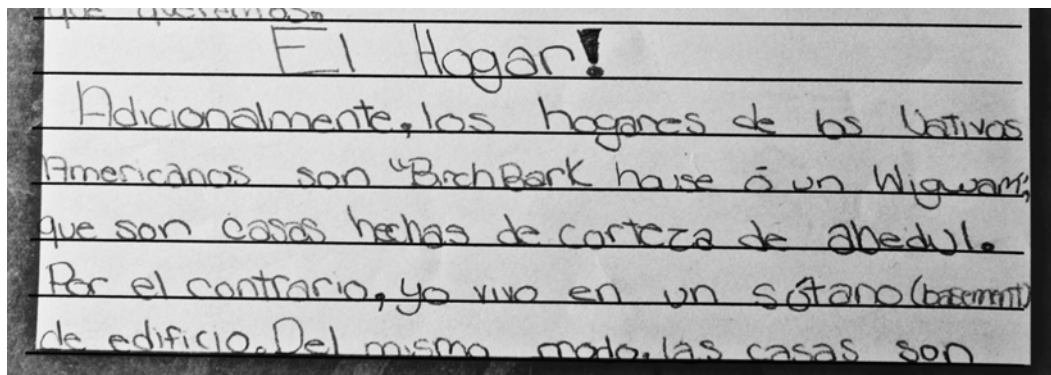 que queremos.
El Hogar!
Adicionalmente, los hogares de los Nativos
Americanos son "BirchBark house ó un Wigwam",
que son casas hechas de corteza de abedul.
Por el contrario, yo vivo en un sótano (basement)
de edificio. Del mismo modo, las casas son